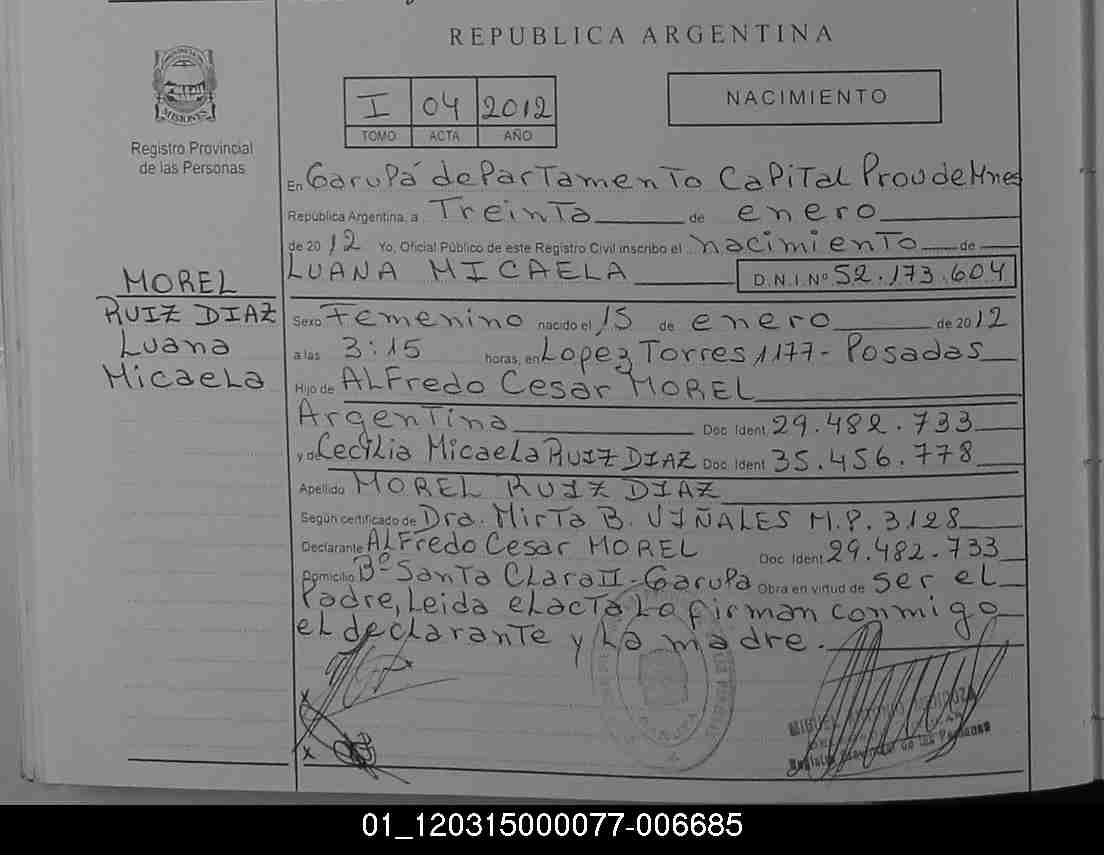 REPUBLICA ARGENTINA
PROVINCIA DE
MISIONES
Registro Provincial
de las Personas
I 04 2012
TOMO ACTA AÑO
NACIMIENTO
En Garupá departamento Capital Prov de Mnes
República Argentina, a Treinta de enero
de 2012 Yo, Oficial Público de este Registro Civil inscribo el nacimiento de
LUANA MICAELA D.N.I.Nº 52.173.604
MOREL
RUIZ DIAZ
Luana
Micaela
Sexo Femenino nacido el 15 de enero de 2012
a las 3:15 horas, en Lopez Torres 1177- Posadas
Hijo de ALFredo Cesar MOREL
Argentina Doc Ident. 29.482.733
y de Cecilia Micaela RUIZ DIAZ Doc Ident 35.456.778
Apellido MOREL RUIZ DIAZ
Según certificado de Dra. Mirta B. VIÑALES M.P. 3128
Declarante ALFredo Cesar MOREL Doc Ident 29.482.733
Domicilio Bº Santa Clara II - Garupa Obra en virtud de ser el
Padre, Leida el acta la firman conmigo
el declarante y la madre.
Registro Provincial de las Personas
01_120315000077-006685